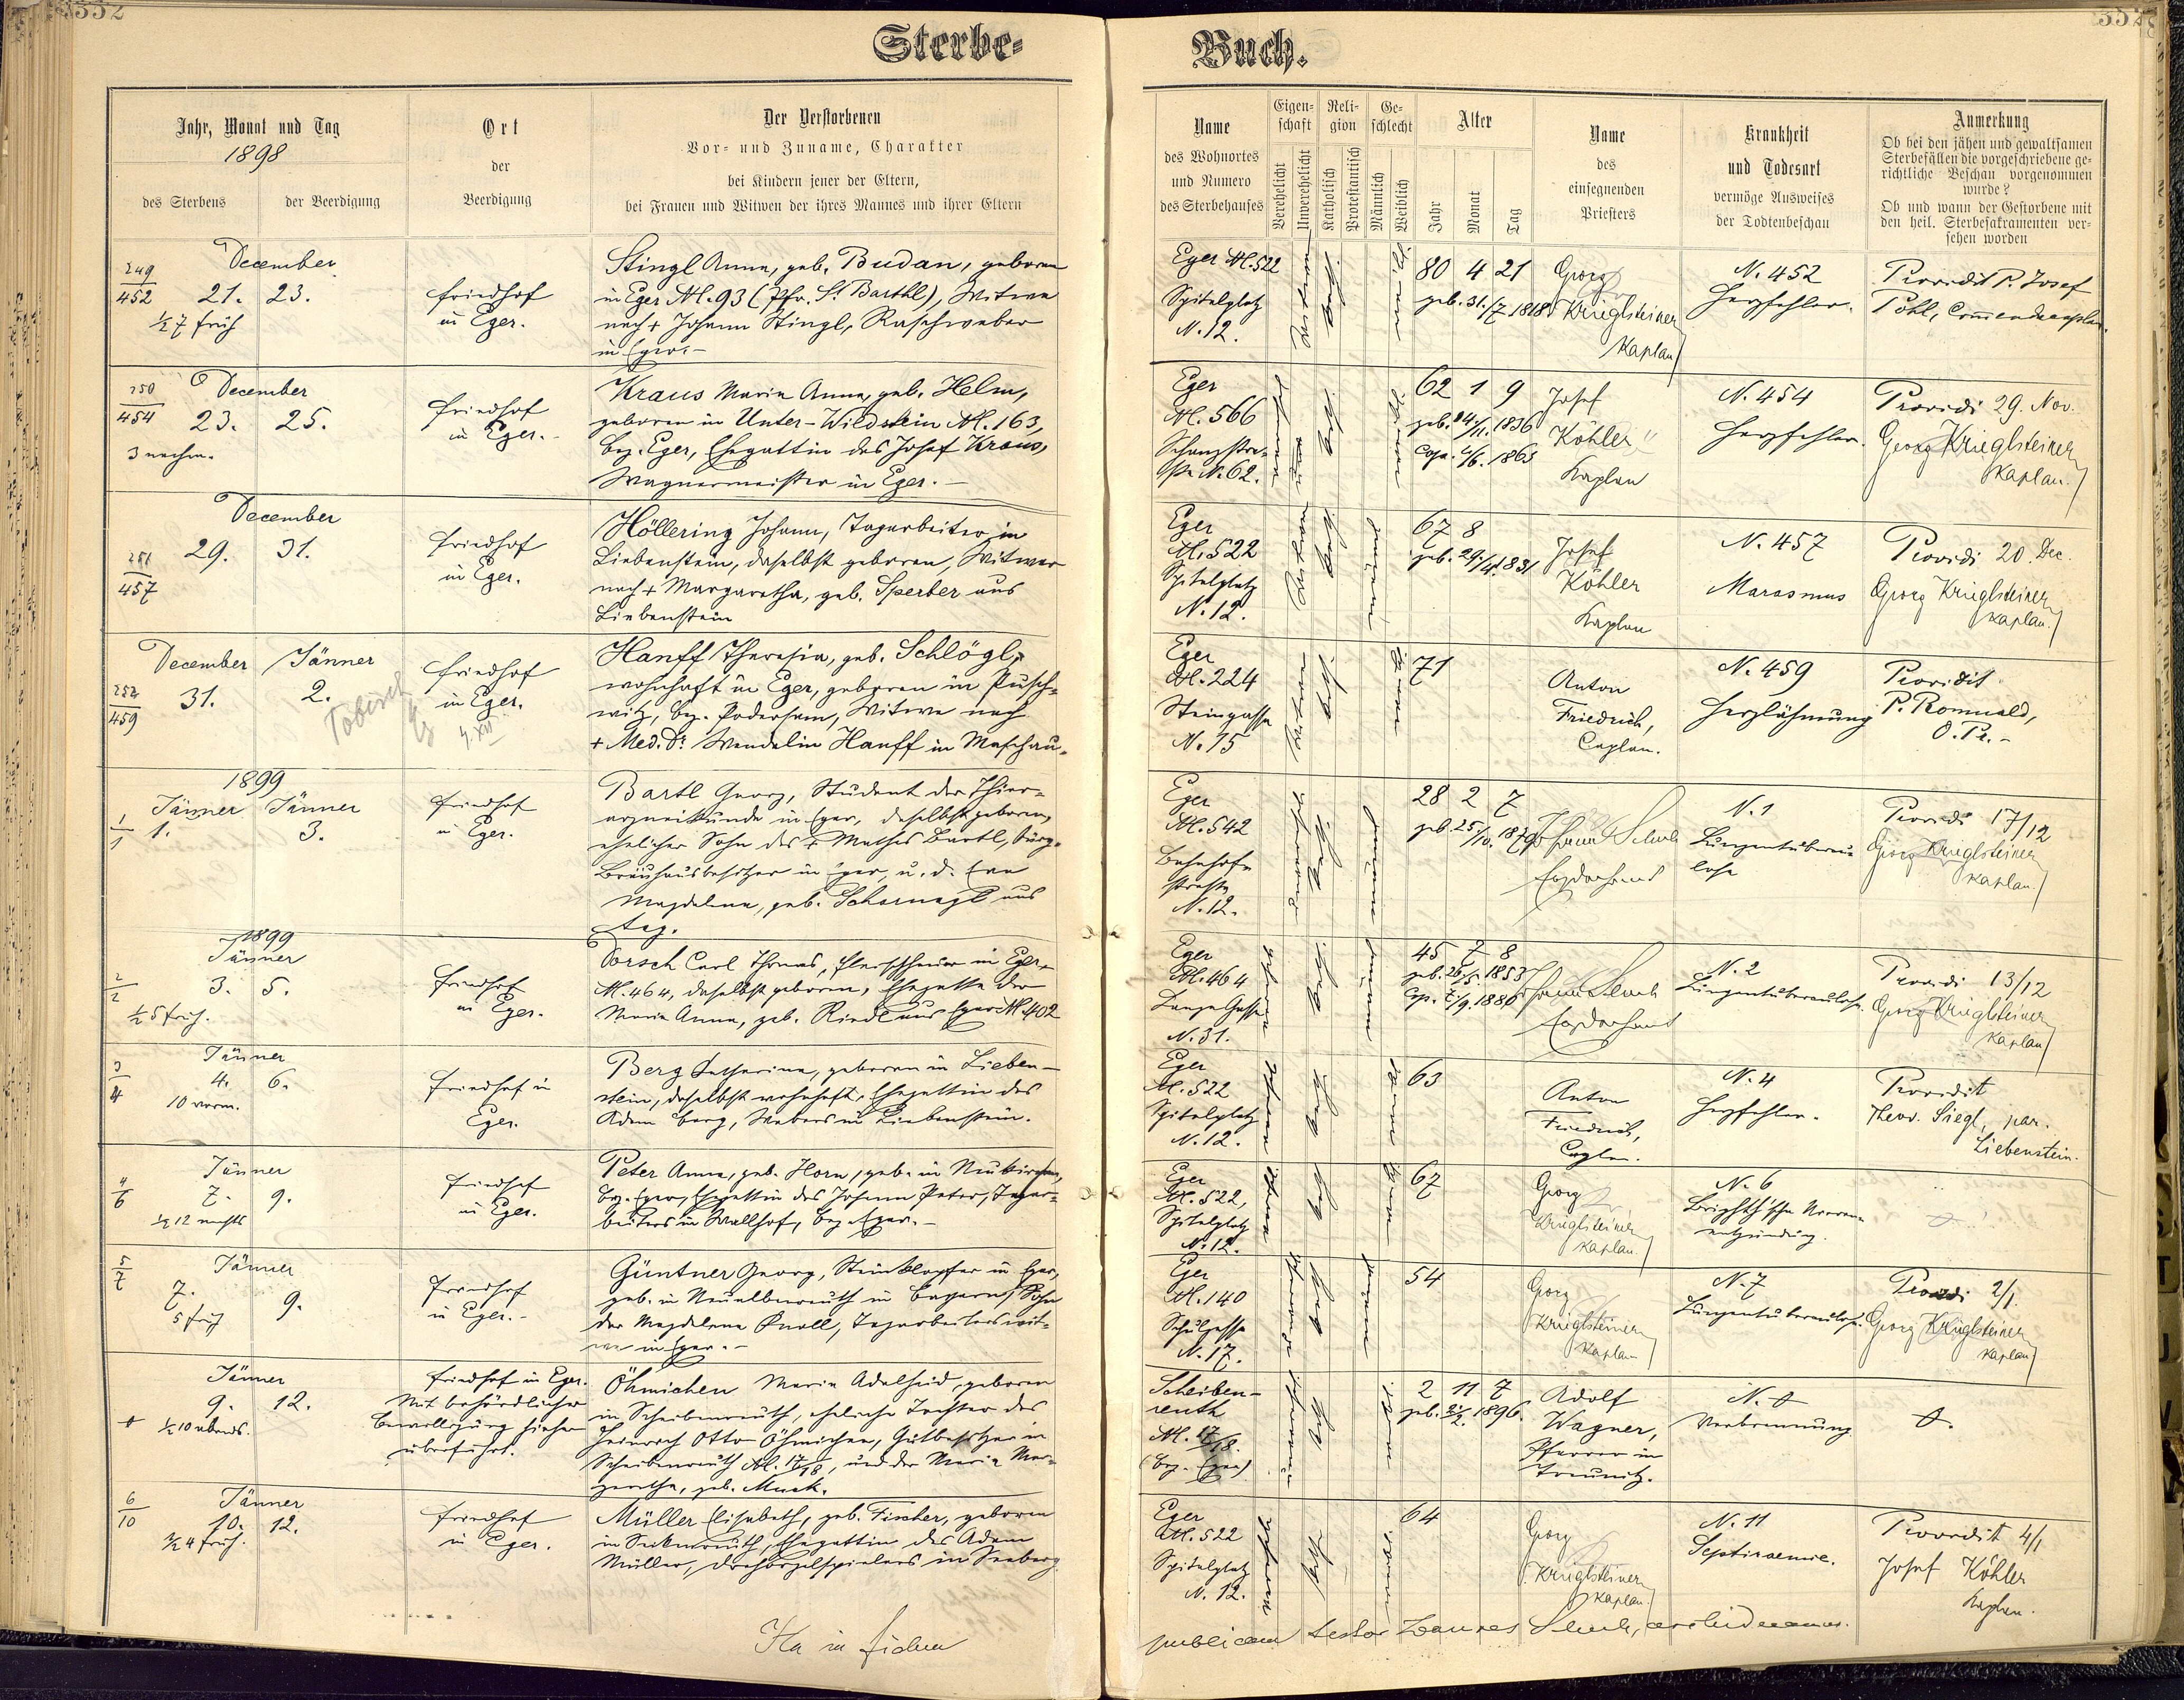 352
Sterbe-
Jahr, Monat und Tag
1898
des Sterbens
der Beerdigung
Ort
der
Beerdigung
Der Verstorbenen
Vor- und Zuname, Charakter
bei Kindern jener der Eltern,
bei Frauen und Witwen der ihres Mannes und ihrer Eltern
249
452
December
21. 23.
½ 7 früh
Friedhof
in Eger.
Stingl Anna, geb. Budan, geboren
in Eger N. 93 (Pfr. St. Barthl), Witwe
nach + Johann Stingl, Raschweber
in Eger.-
250
454
December
23. 25.
3 nachm.
Friedhof
in Eger.
Kraus Maria Anna, geb. Helm,
geboren in Unter-Wildstein N. 163,
Bez. Eger, Ehegattin des Josef Kraus,
Wagnermeister in Eger.-
251
457
December
29. 31.
Friedhof
in Eger.
Höllering Johann, Tagarbeiter in
Liebenstein, daselbst geboren, Witwer
nach + Margaretha, geb. Sperber aus
Liebenstein
252
459
December Jänner
31. 2.
Tobisch
Friedhof
in Eger.
Hanff Theresia, geb. Schlögl,
wohnhaft in Eger, geboren in Pusch-
witz, Bez. Podersam, Witwe nach
+ Med. Dr. Wendelin Hanff in Maschau.
1899
1
1
Jänner Jänner
1. 3.
Friedhof
in Eger.
Bartl Georg, Student der Thier-
arzneikunde in Eger, daselbst geboren,
ehelicher Sohn des + Mathes Bartl, Bürg.
Bräuhausbesitzer in Eger, u. d. Eva
Magdalena, geb. Schornagl aus
1899
2
2
Jänner
3. 5.
½ 5 früh.
Friedhof
in Eger.
Dorsch Carl Thomas, Fleischhauer in Eger,
N. 464, daselbst geboren, Ehegatte der
Maria Anna, geb. Riedl aus Eger N 402
3
4
Jänner
4. 6.
10 vorm.
Friedhof in
Eger.
Berg Katharina, geboren in Lieben-
stein, daselbst wohnhaft, Ehegattin des
Adam Berg, Webers in Liebenstein.
4
6
Jänner
7. 9.
½ 12 nachts
Friedhof
in Eger.
Peter Anna, geb. Horn, geb. in Neukirchen,
Bez. Eger, Ehegattin des Johann Peter, Tagar-
beiters in Wallhof, Bez. Eger.-
5
7
Jänner
7. 9.
5 früh
Friedhof
in Eger.-
Güntner Georg, Steinklopfer in Eger,
geb. in Neualbenreuth in Bayern, Sohn
der Magdalena Knoll, Tagarbeiterswit-
we in Eger.-
+
Jänner
9. 12.
½ 10 abends.
Friedhof in Eger.
Mit behördlicher
Bewilligung hieher
überführt.
Öhmichen Maria Adelheid, geboren
in Scheibenreuth, eheliche Tochter des
Heinrich Otto Öhmichen, Gutbesitzer in
Scheibenreuth N. 17/18, und der Maria Mar-
garetha, geb. Muck.
6
10
Jänner
10. 12.
¾ 4 früh.
Friedhof
in Eger.
Müller Elisabeth, geb. Fischer, geboren
in Seichenreuth, Ehegattin des Adam
Müller, Drehorgelspielers in Seeberg
Ita in fidem
Buch.
Name
des Wohnortes
und Numero
des Sterbehauses
Eigen-
schaft
Verehelicht
Unverehelicht
Reli-
gion
Katholisch
Protestantisch
Ge-
schlecht
Männlich
Weiblich
Alter
Jahr
Monat
Tag
Name
des
einsegnenden
Priesters
Krankheit
und Todesart
vermöge Ausweises
der Todtenbeschau
Anmerkung
Ob bei den jähen und gewaltsamen
Sterbefällen die vorgeschriebene ge-
richtliche Beschau vorgenommen
wurde?
Ob und wann der Gestorbene mit
den heil. Sterbesakramenten ver-
sehen worden
Eger N. 522
Spitalplatz
N. 12.
80 4 21
geb. 31./7 1818
Georg
Krieglsteiner
Kaplan
N. 452
Herzfehler.
Providit P. Josef
Pöhl, Commendkaplan.
Eger
N. 566
Schanzstra-
ße N. 62.
62 1 9
geb. 14/11. 1836
Cop. 6/6. 1865
Josef
Köhler
Kaplan
N. 454
Herzfehler.
Providi 29. Nov.
Georg Krieglsteiner
Kaplan.
Eger
N. 522
Spitalplatz
N. 12.
67 8
geb. 29./4. 1831
Josef
Köhler
Kaplan
N. 457
Marasmus
Providi 20. Dec.
Georg Krieglsteiner
Kaplan.
Eger
N. 224
Steingasse
N. 15
71
Anton
Friedrich,
Caplan.
N. 459
Herzlähmung
Providit
P. Romuald,
O. Pr.-
Eger
N. 542
Bahnhof-
straße
N. 12.
28 2 7
geb. 25./10. 1870
Johann Schuh
Erzdechant
N. 1
Lungentubercu-
lose
Providi 17/12
Georg Krieglsteiner
Kaplan.
Eger
N. 464
Lange Gasse
N. 31.
45 7 8
geb. 26/5. 1853
Cop. 7/9. 1886
Johann Schuh
Erzdechant
N. 2
Lungentuberculose.
Providi 13/12
Georg Krieglsteiner
Kaplan
Eger
N. 522
Spitalplatz
N. 12.
63
Anton
Friedrich,
Caplan.
N. 4
Herzfehler.
Providit
Theod. Siegl, par.
Liebenstein.
Eger
N. 522,
Spitalplatz
N. 12.
67
Georg
Krieglsteiner
Kaplan.
N. 6
Brighth'sche Nieren-
entzündung.
Eger
N. 140
Schulgasse
N. 17.
54
Georg
Krieglsteiner
Kaplan
N. 7
Lungentuberculose.
Providi 2/1.
Georg Krieglsteiner
Kaplan
Scheiben-
reuth
N. 17/18.
(Bez. Eger)
2 11 7
geb. 2/2. 1896.
Adolf
Wagner,
Pfarrer in
Treunitz.
Verbrennung.
Eger
N. 522
Spitalplatz
N. 12.
64
Georg
Krieglsteiner
Kaplan.
N. 11
Septicaemie.
Providit 4/1
Josef Köhler
Kaplan.
publicam testor Joannes Schuh, archidecanus.